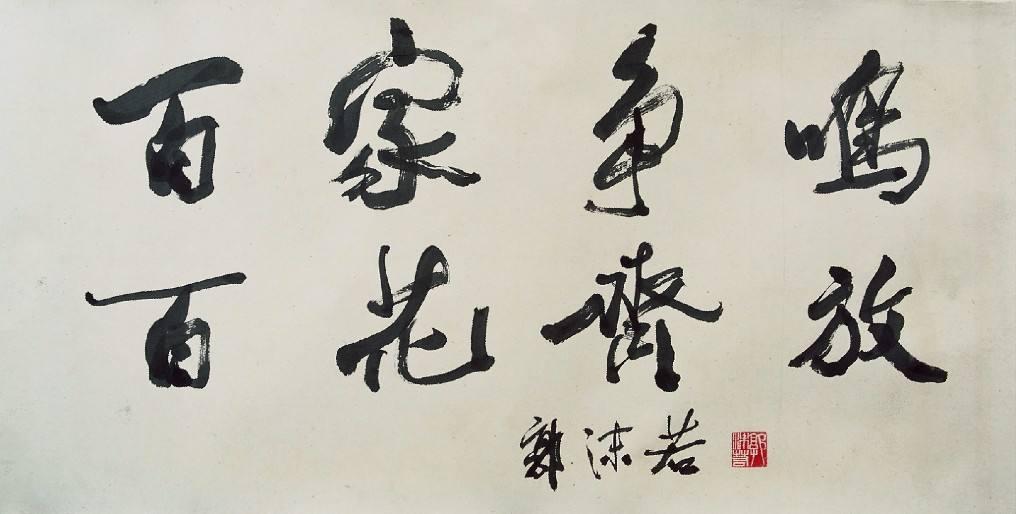 百家争鸣
百花齊放
郭沫若
郭沫若